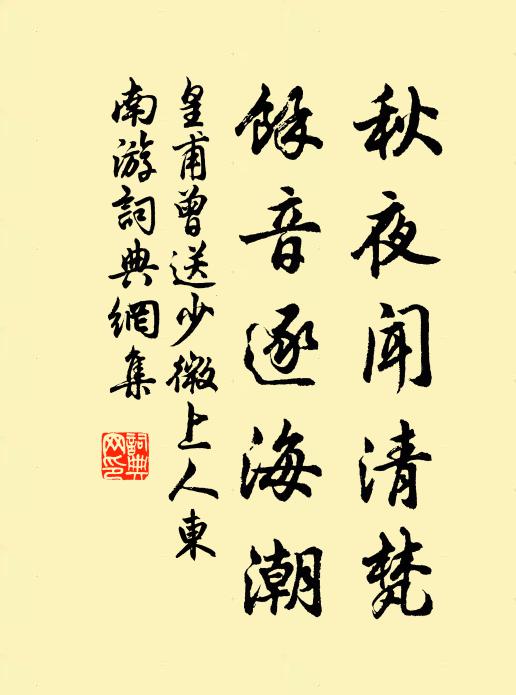 秋夜聞清梵
餘音逐海潮
皇甫曾送少微上人東
南游詞典網集
詞典
网印